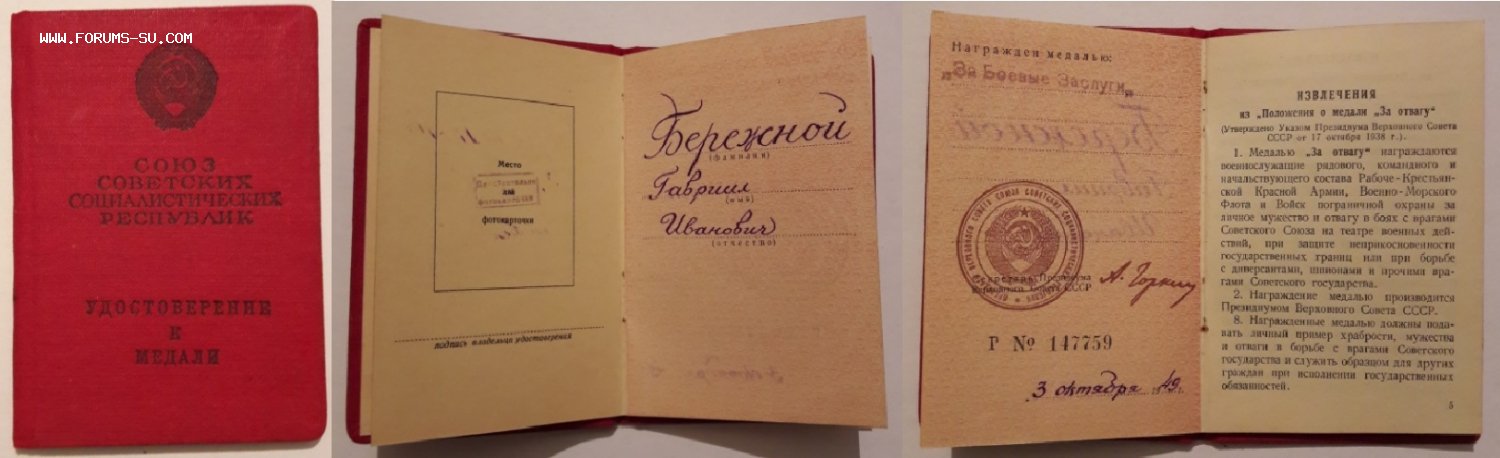 WWW.FORUMS-SU.COM
СОЮЗ
СОВЕТСКИХ
СОЦИАЛИСТИЧЕСКИХ
РЕСПУБЛИК
УДОСТОВЕРЕНИЕ
К
МЕДАЛИ
Место
для
фотокарточки
подпись владельца удостоверения
Бережной
(фамилия)
Гавриил
(имя)
Иванович
(отчество)
Награжден медалью:
„За Боевые Заслуги"
Секретарь Президиума
Верховного Совета СССР
А. Горкин
Р № 147759
3 октября 1949 г.
ИЗВЛЕЧЕНИЯ
из „Положения о медали „За отвагу"
(Утверждено Указом Президиума Верховного Совета
СССР от 17 октября 1938 г.).
1. Медалью „За отвагу" награждаются
военнослужащие рядового, командного и
начальствующего состава Рабоче-Крестьян-
ской Красной Армии, Военно-Морского
Флота и Войск пограничной охраны за
личное мужество и отвагу в боях с врагами
Советского Союза на театре военных дей-
ствий, при защите неприкосновенности
государственных границ или при борьбе
с диверсантами, шпионами и прочими вра-
гами Советского государства.
2. Награждение медалью производится
Президиумом Верховного Совета СССР.
8. Награжденные медалью должны пода-
вать личный пример храбрости, мужества
и отваги в борьбе с врагами Советского
государства и служить образцом для других
граждан при исполнении государственных
обязанностей.
5